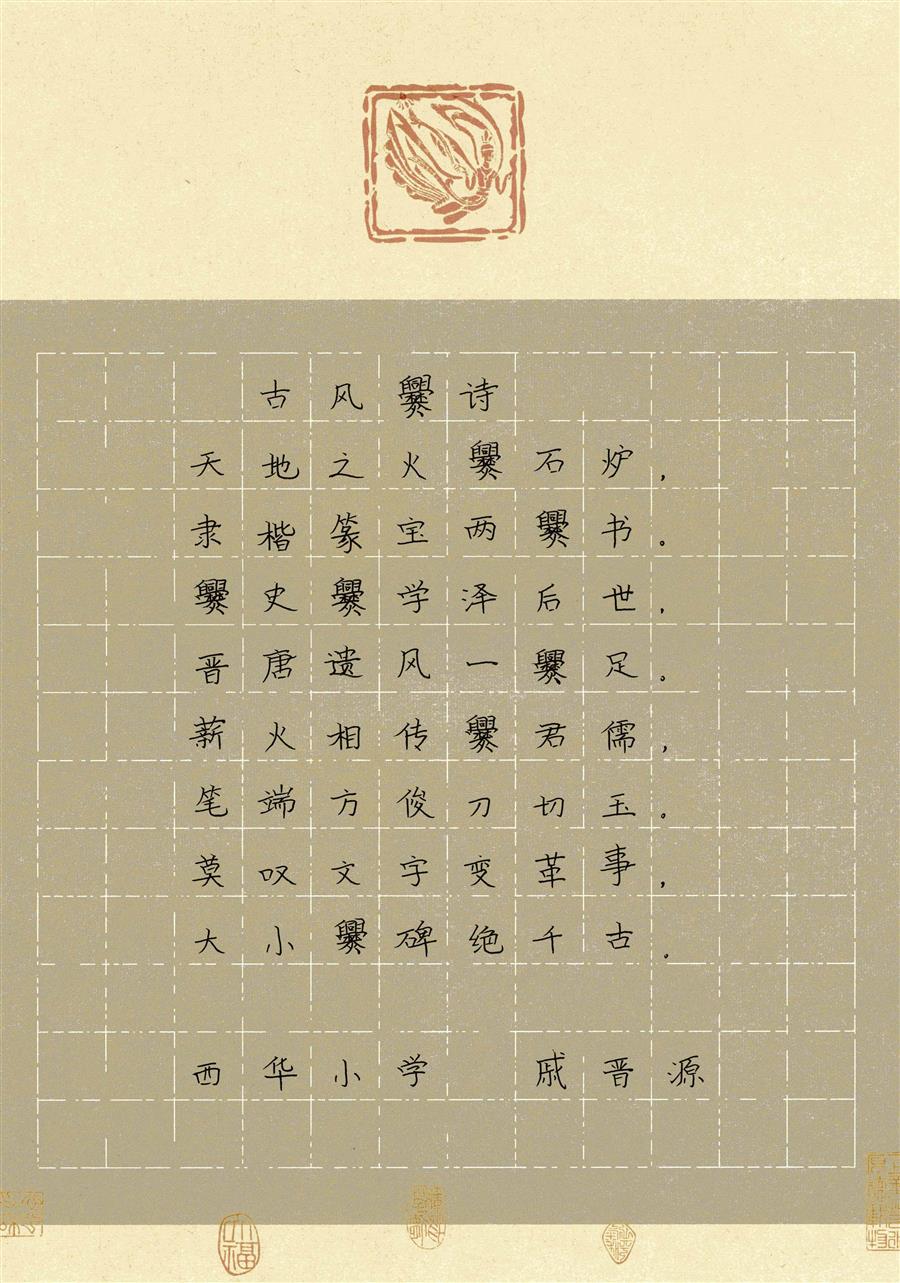 古风爨诗
天地之火爨石炉，
隶楷篆宝两爨书。
爨史爨学泽后世，
晋唐遗风一爨足。
薪火相传爨君儒，
笔端方俊刀切玉。
莫叹文字变革事，
大小爨碑绝千古。
西华小学 戚晋源